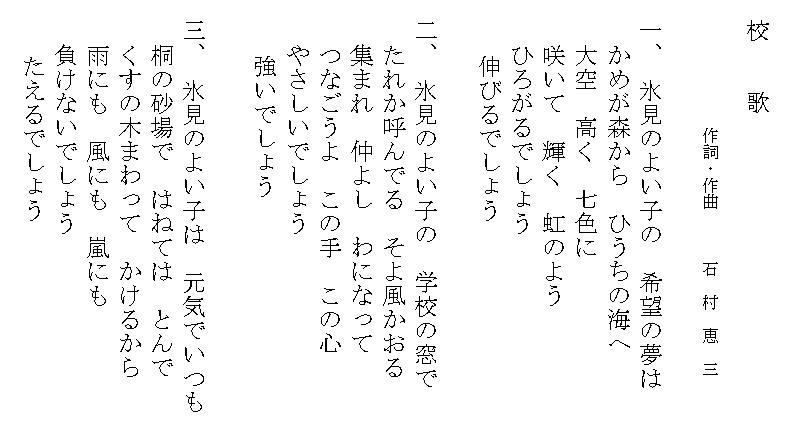 校　歌
作詞・作曲　　石　村　恵　三
一、　氷見のよい子の　希望の夢は
かめが森から　ひうちの海へ
大空　高く　七色に
咲いて　輝く　虹のよう
ひろがるでしょう
伸びるでしょう
二、　氷見のよい子の　学校の窓で
たれか呼んでる　そよ風かおる
集まれ　仲よし　わになって
つなごうよ　この手　この心
やさしいでしょう
強いでしょう
三、　氷見のよい子は　元気でいつも
桐の砂場で　はねては　とんで
くすの木まわって　かけるから
雨にも　風にも　嵐にも
負けないでしょう
たえるでしょう